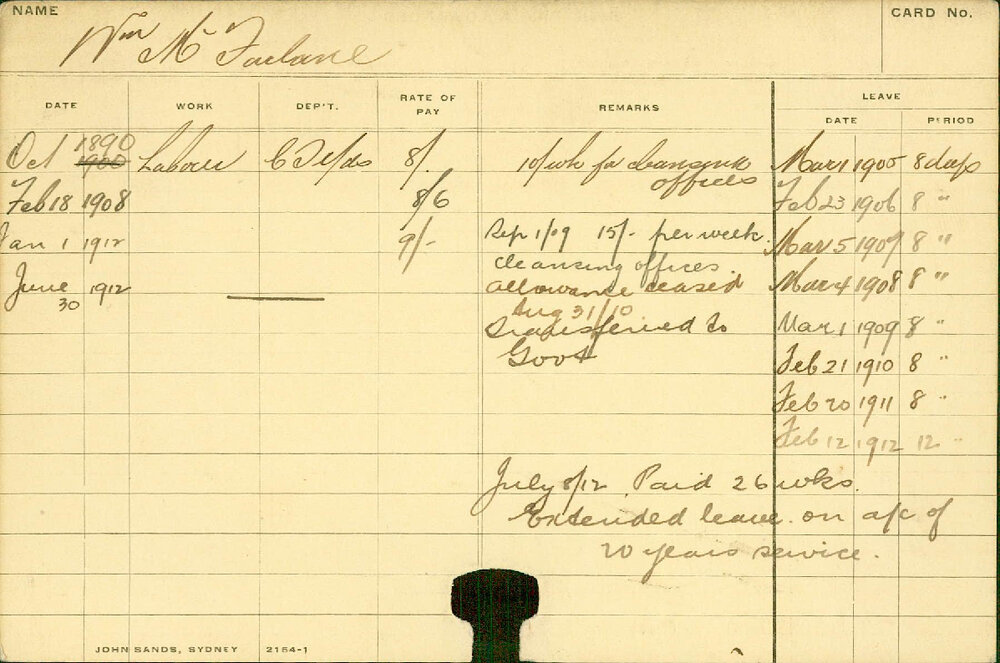 NAME
CARD No.
Wm McFarlane
DATE WORK DEP'T. RATE OF PAY REMARKS LEAVE
DATE PERIOD
Oct 1890 1900 Labourer 8/. 10/ wk for cleansing offices Mar 1 1905 8 days
Feb 18 1908 8/6 Feb 23 1906 8 "
Jan 1 1912 9/- Sep 1/09 15/- per week. Mar 5 1907 8 "
cleansing offices.
June 30 1912 allowance ceased Mar 4 1908 8 "
Aug 31/10
Transferred to Mar 1 1909 8 "
Govt Feb 21 1910 8 "
Feb 20 1911 8 "
Feb 12 1912 12 "
July 8/12 Paid 26 wks.
Extended leave on a/c of
20 years service.
JOHN SANDS, SYDNEY 2154-1